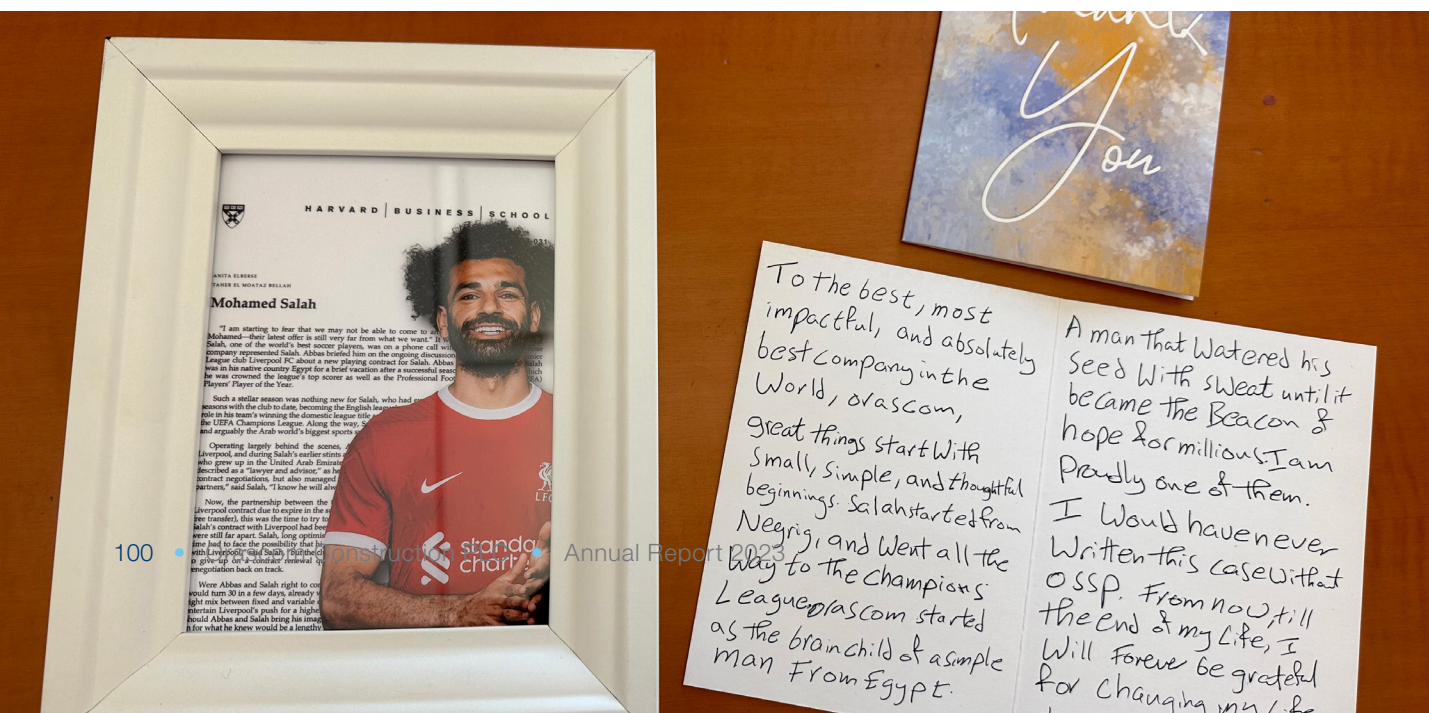 HARVARD | BUSINESS | SCHOOL
031
ANITA ELBERSE
TAHER EL MOATAZ BELLAH
Mohamed Salah
"I am starting to fear that we may not be able to come to
Mohamed—their latest offer is still very far from what we want." It
Salah, one of the world's best soccer players, was on a phone call
company represented Salah. Abbas briefed him on the ongoing discussion
League club Liverpool FC about a new playing contract for Salah. Abbas
was in his native country Egypt for a brief vacation after a successful
he was crowned the league's top scorer as well as the Professional
Players' Player of the Year.
Such a stellar season was nothing new for Salah, who had
seasons with the club to date, becoming the English
role in his team's winning the domestic league title
the UEFA Champions League. Along the way,
and arguably the Arab world's biggest sports
Operating largely behind the scenes,
Liverpool, and during Salah's earlier stints
who grew up in the United Arab
described as a "lawyer and advisor," as he
contract negotiations, but also managed
partners," said Salah, "I know he will
Now, the partnership between the
Liverpool contract due to expire in the
free transfer), this was the time to try to
Salah's contract with Liverpool had
were still far apart. Salah, long
time had to face the possibility that
with Liverpool," said Salah, "but the
to give up on a contract renewal
renegotiation back on track.
Were Abbas and Salah right to
would turn 30 in a few days, already
right mix between fixed and variable
entertain Liverpool's push for a
should Abbas and Salah bring his
for what he knew would be a lengthy
standard
chart
LFC
Thank
You
To the best, most
impactful, and absolutely
best company in the
World, orascom,
great things start With
small, simple, and thoughtful
beginnings. Salah started from
Negrig, and Went all the
way to the champions
League, orascom started
as the brainchild of a simple
man From Egypt.
A man that Watered his
seed With sweat until it
became the Beacon of
hope for millions. I am
Proudly one of them.
I Would have never
Written this case Without
OSSP. From now, till
the end of my Life, I
Will Forever be grateful
for changing my Life
100 • Orascom Construction PLC • Annual Report 2023